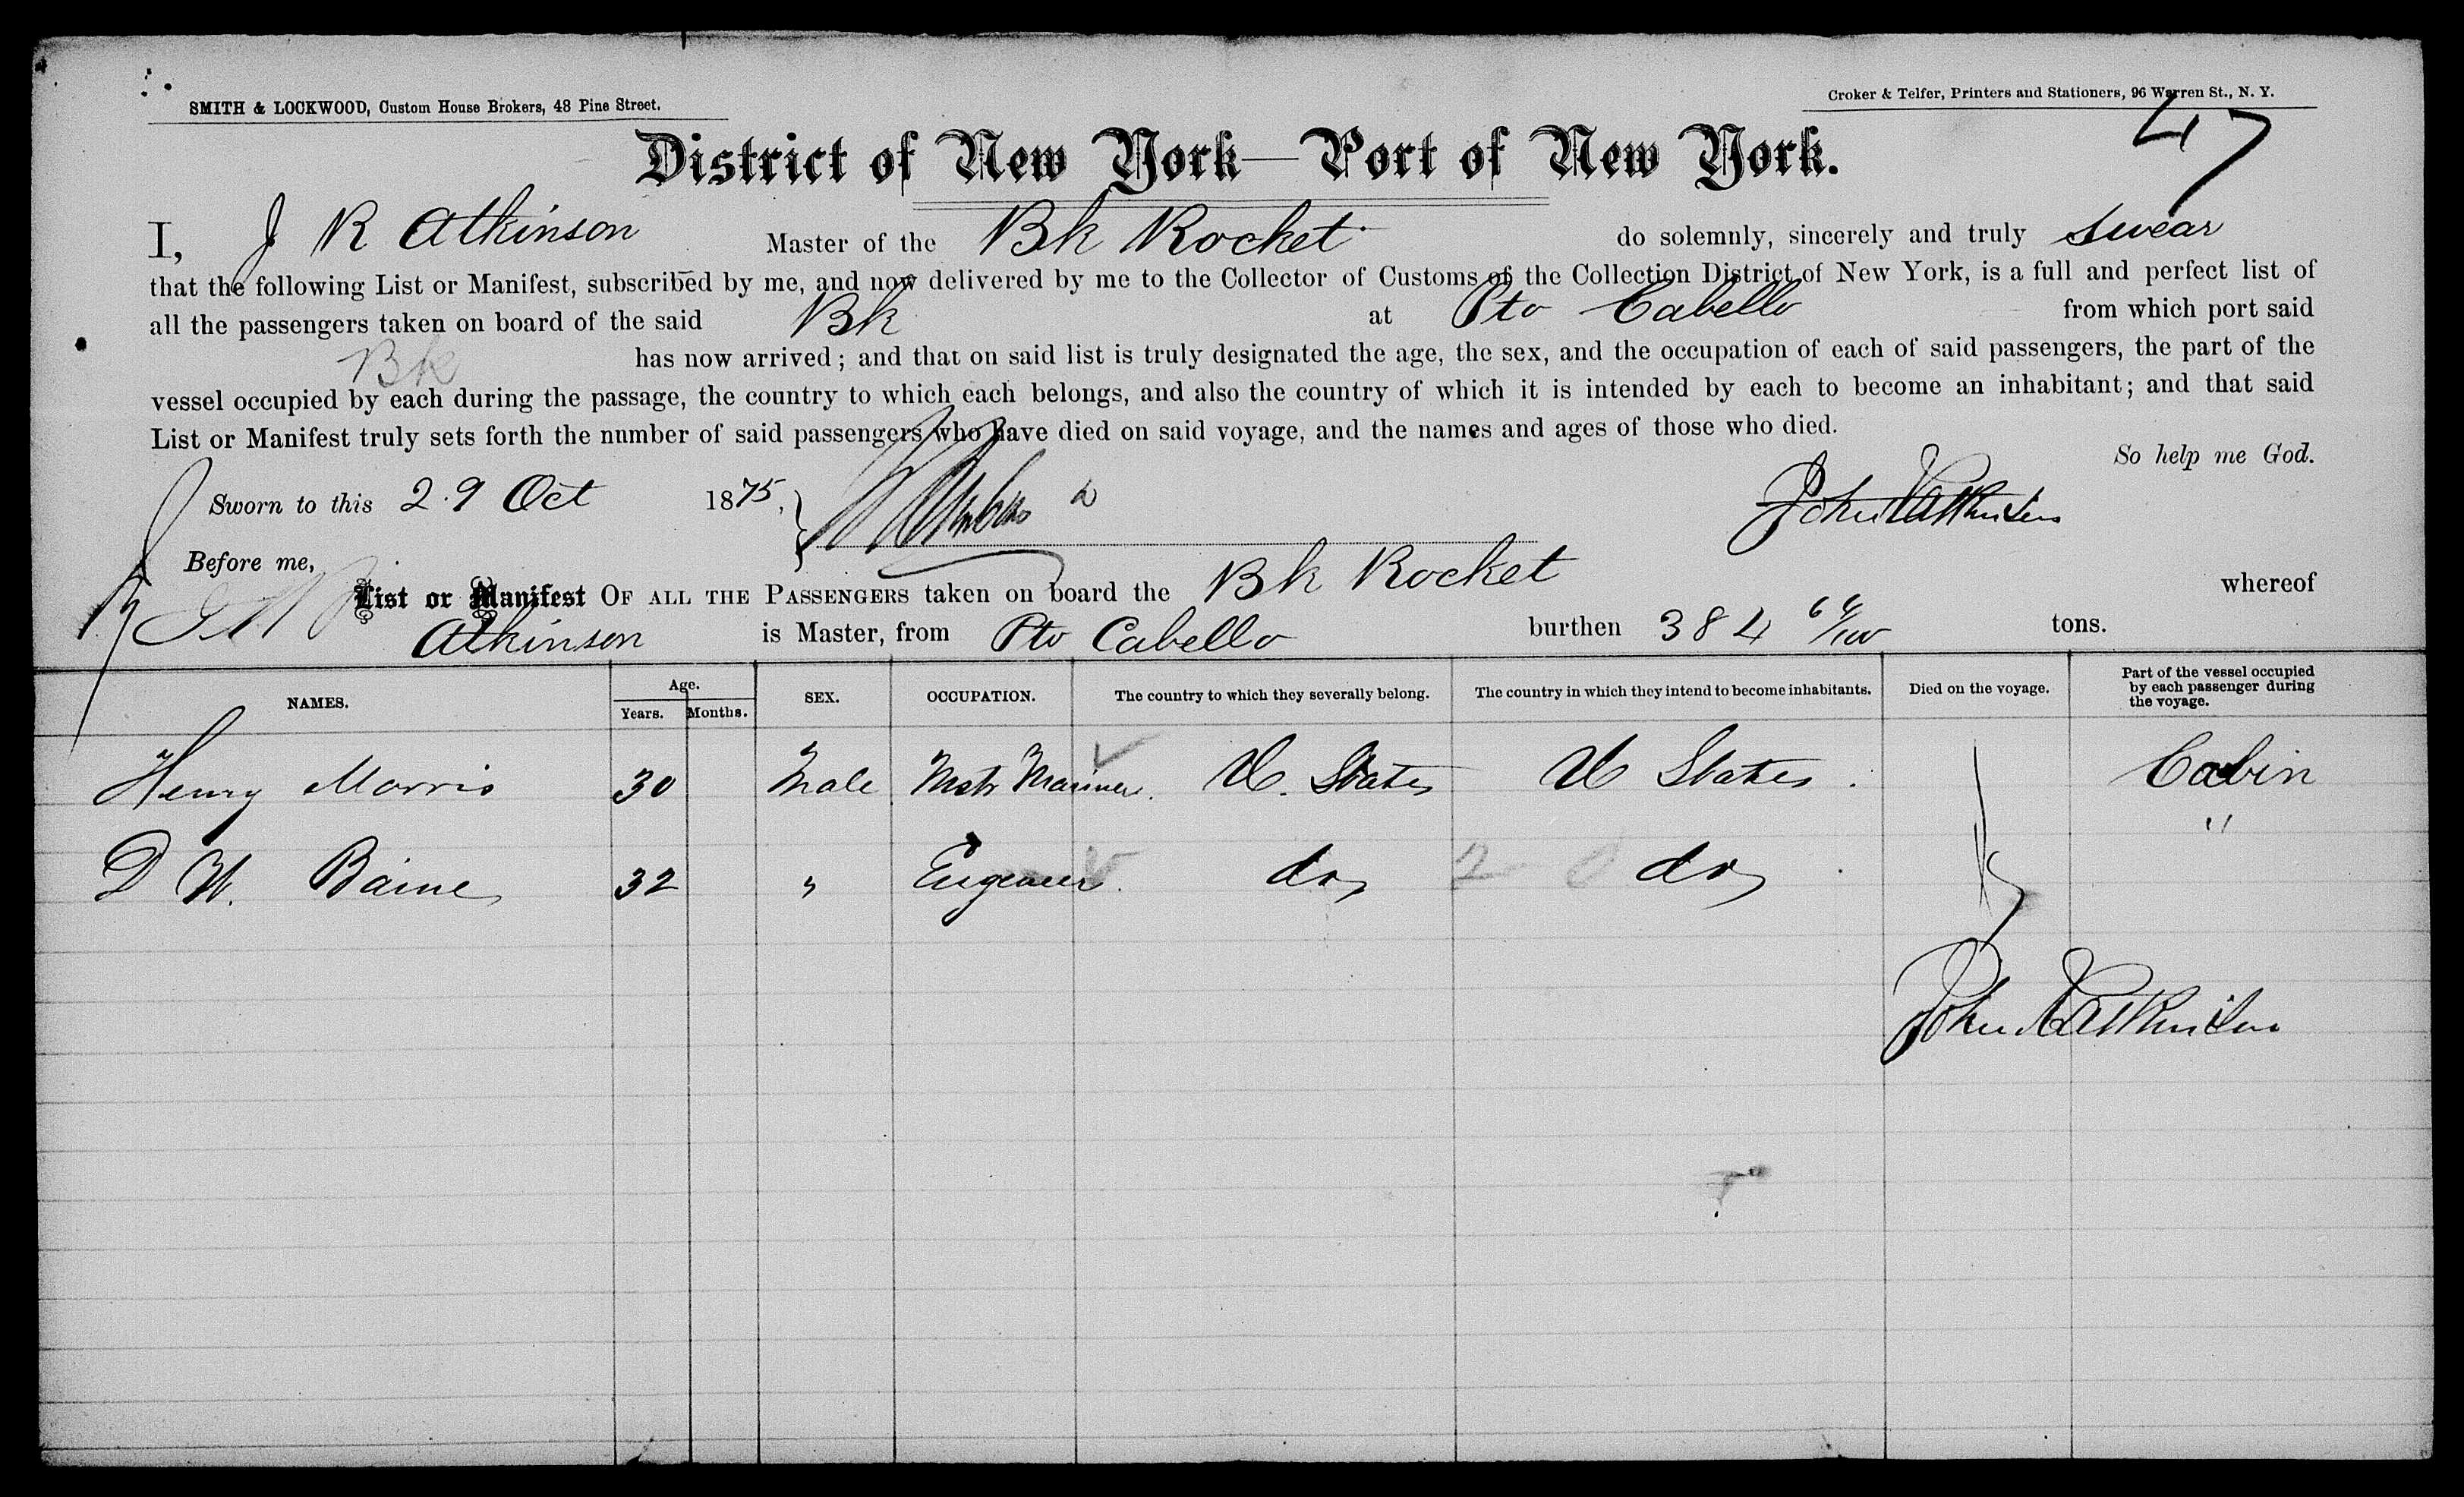 SMITH & LOCKWOOD, Custom House Brokers, 48 Pine Street.
Croker & Telfer, Printers and Stationers, 96 Warren St., N. Y.
47
District of New York—Port of New York.
I, J R Atkinson Master of the Bk Rocket do solemnly, sincerely and truly swear
that the following List or Manifest, subscribed by me, and now delivered by me to the Collector of Customs of the Collection District of New York, is a full and perfect list of
all the passengers taken on board of the said Bk at Pto Cabello from which port said
Bk has now arrived; and that on said list is truly designated the age, the sex, and the occupation of each of said passengers, the part of the
vessel occupied by each during the passage, the country to which each belongs, and also the country of which it is intended by each to become an inhabitant; and that said
List or Manifest truly sets forth the number of said passengers who have died on said voyage, and the names and ages of those who died.
So help me God.
Sworn to this 29 Oct 1875, John R Atkinson
Before me,
List or Manifest OF ALL THE PASSENGERS taken on board the Bk Rocket whereof
Atkinson is Master, from Pto Cabello burthen 384 66/100 tons.
NAMES. Age. Years. Months. SEX. OCCUPATION. The country to which they severally belong. The country in which they intend to become inhabitants. Died on the voyage. Part of the vessel occupied by each passenger during the voyage.
Henry Morris 30 Male Mstr Mariner. U. States U States. Cabin
D W. Baine 32 " Engeneer. do do "
2 0
John R Atkinson